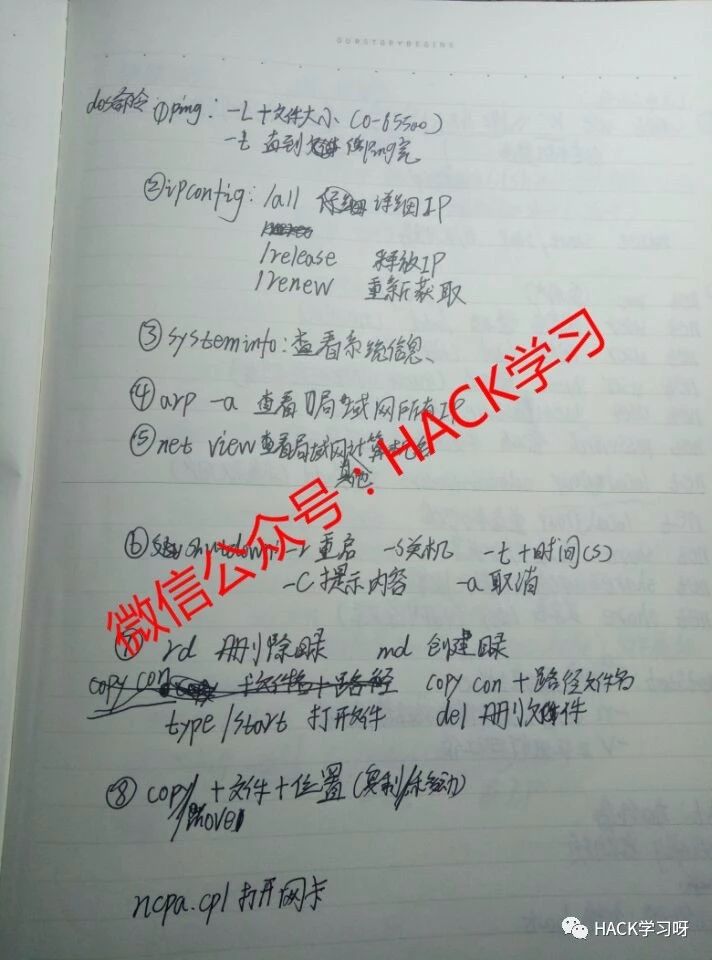 OURSTORYBEGINS
dos命令 ①ping: -L+文件大小 (0-65500)
-t 直到 ping完
②ipconfig: /all 详细IP
/release 释放IP
/renew 重新获取
③systeminfo: 查看系统信息、
④arp -a 查看局域网所有IP
⑤net view 查看局域网计算机名
其他
⑥shutdown: -r 重启 -s关机 -t+时间(s)
-C 提示内容 -a 取消
⑦ rd 删除目录 md 创建目录
copy con +文件名+路径 copy con+路径文件名
type/start 打开文件 del 删文件
⑧copy +文件+位置(复制/移动)
/move
ncpa.cpl 打开网卡
微信公众号：HACK学习
HACK学习呀